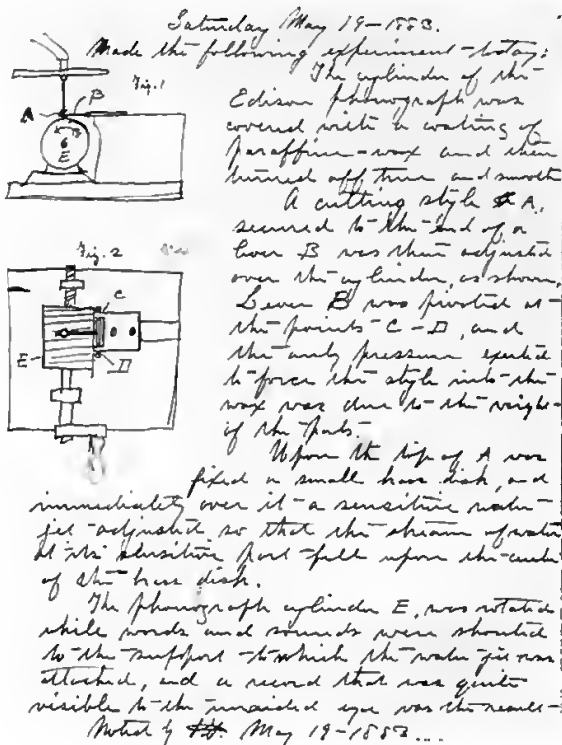 Saturday May 19-1883.
Made the following experiment-today:
Fig. 1
A
B
E
The cylinder of the
Edison phonograph was
covered with a coating of
paraffine-wax and then
turned off true and smooth
A cutting style A,
secured to the end of a
lever B was then adjusted
over the cylinder, as shown.
Lever B was pivoted at
the points C-D, and
the only pressure exerted
to force the style into the
wax was due to the weight-
of the parts-
Fig. 2
C
E
D
Upon the top of A was
fixed a small brass disk, and
immediately over it-a sensitive water-
jet-adjusted so that the stream of water
at its sensitive part-fell upon the center
of the brass disk.
The phonograph cylinder E, was rotated
while words and sounds were shouted
to the support-to which the water jet was
attached, and a record that was quite
visible to the unaided eye was the result-
Noted by May 19-1883...